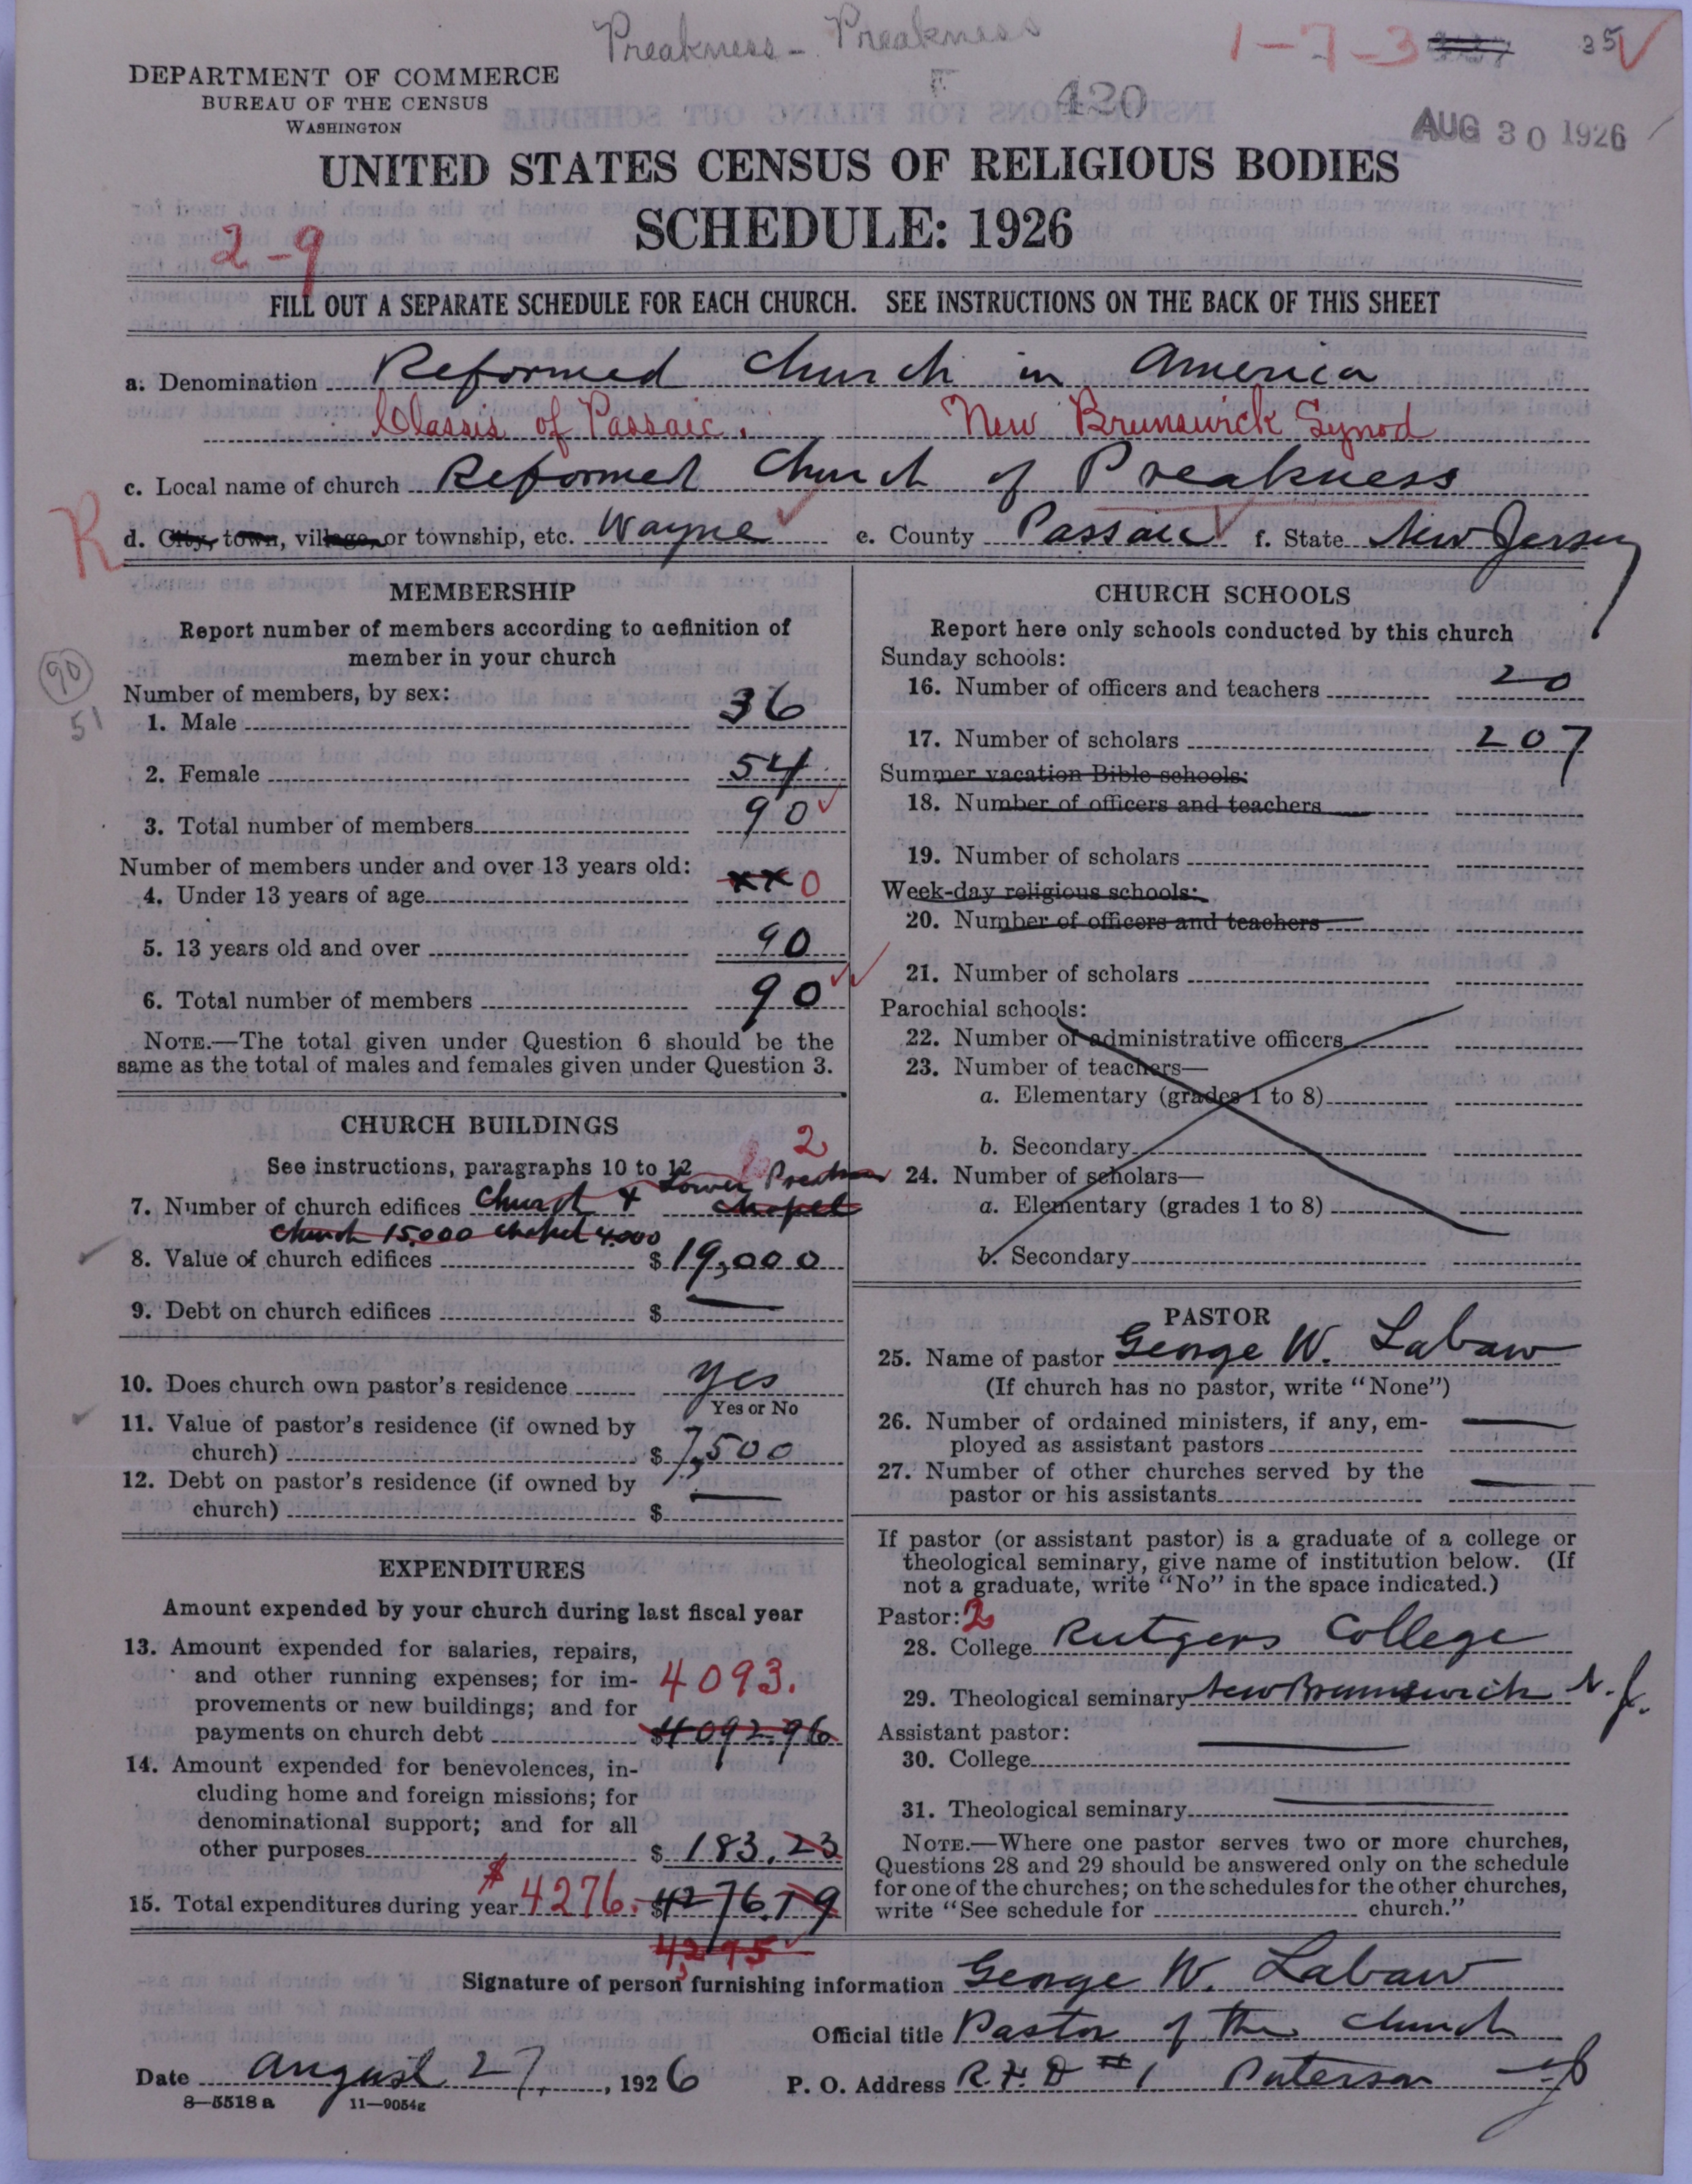 Preakness - Preakness
1-7-3 35
DEPARTMENT OF COMMERCE
BUREAU OF THE CENSUS
WASHINGTON
420
AUG 30 1926
UNITED STATES CENSUS OF RELIGIOUS BODIES
SCHEDULE: 1926
2-9
FILL OUT A SEPARATE SCHEDULE FOR EACH CHURCH. SEE INSTRUCTIONS ON THE BACK OF THIS SHEET
a. Denomination Reformed Church in America
Classis of Passaic. New Brunswick Synod
c. Local name of church Reformed Church of Preakness
R
d. City, town, village, or township, etc. Wayne e. County Passaic f. State New Jersey
MEMBERSHIP
Report number of members according to definition of
member in your church
90
51
Number of members, by sex:
1. Male 36
2. Female 54
3. Total number of members 90
Number of members under and over 13 years old:
4. Under 13 years of age xx 0
5. 13 years old and over 90
6. Total number of members 90
NOTE.—The total given under Question 6 should be the
same as the total of males and females given under Question 3.
CHURCH BUILDINGS
See instructions, paragraphs 10 to 12
2
7. Number of church edifices Church & Lower Chapel
Church 15,000 Chapel 4000
8. Value of church edifices $ 19,000
9. Debt on church edifices $ —
10. Does church own pastor's residence Yes
Yes or No
11. Value of pastor's residence (if owned by
church) $ 7,500
12. Debt on pastor's residence (if owned by
church) $ —
EXPENDITURES
Amount expended by your church during last fiscal year
13. Amount expended for salaries, repairs,
and other running expenses; for im-
provements or new buildings; and for
payments on church debt 4093.
$4092.96
14. Amount expended for benevolences, in-
cluding home and foreign missions; for
denominational support; and for all
other purposes $ 183.23
15. Total expenditures during year $4276. $4276.19
4,275
CHURCH SCHOOLS
Report here only schools conducted by this church
Sunday schools:
16. Number of officers and teachers 20
17. Number of scholars 207
Summer vacation Bible schools:
18. Number of officers and teachers
19. Number of scholars
Week-day religious schools:
20. Number of officers and teachers
21. Number of scholars
Parochial schools:
22. Number of administrative officers
23. Number of teachers—
a. Elementary (grades 1 to 8)
b. Secondary
24. Number of scholars—
a. Elementary (grades 1 to 8)
b. Secondary
PASTOR
25. Name of pastor George W. Labaw
(If church has no pastor, write "None")
26. Number of ordained ministers, if any, em-
ployed as assistant pastors —
27. Number of other churches served by the
pastor or his assistants —
If pastor (or assistant pastor) is a graduate of a college or
theological seminary, give name of institution below. (If
not a graduate, write "No" in the space indicated.)
Pastor: 2
28. College Rutgers College
29. Theological seminary New Brunswick N.J.
Assistant pastor:
30. College —
31. Theological seminary —
NOTE.—Where one pastor serves two or more churches,
Questions 28 and 29 should be answered only on the schedule
for one of the churches; on the schedules for the other churches,
write "See schedule for church."
Signature of person furnishing information George W. Labaw
Official title Pastor of the Church
Date August 27, 1926 P. O. Address R.F.D #1 Paterson NJ
8—5518 a 11—9054g